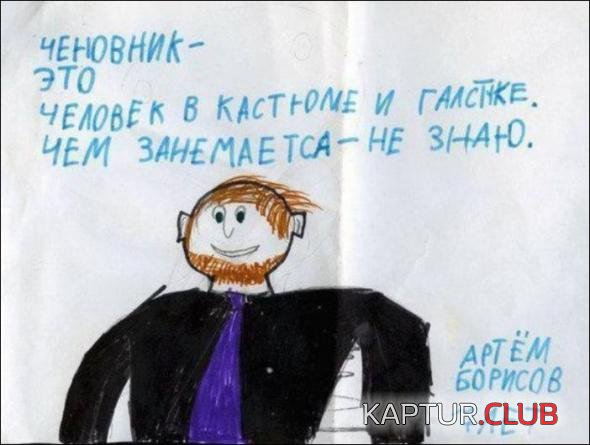 ЧЕНОВНИК-
ЭТО
ЧЕЛОВЕК В КАСТЮМЕ И ГАЛСТУКЕ.
ЧЕМ ЗАНЕМАЕТСА-НЕ ЗНАЮ.
АРТЁМ
БОРИСОВ
ЛЕТ
KAPTUR.CLUB